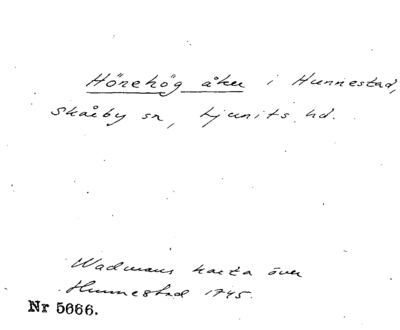 Hönehög åker i Hunnestad,
Skårby sn, Ljunits hd.
Wadmans karta över
Hunnestad 1745.
Nr 5666.